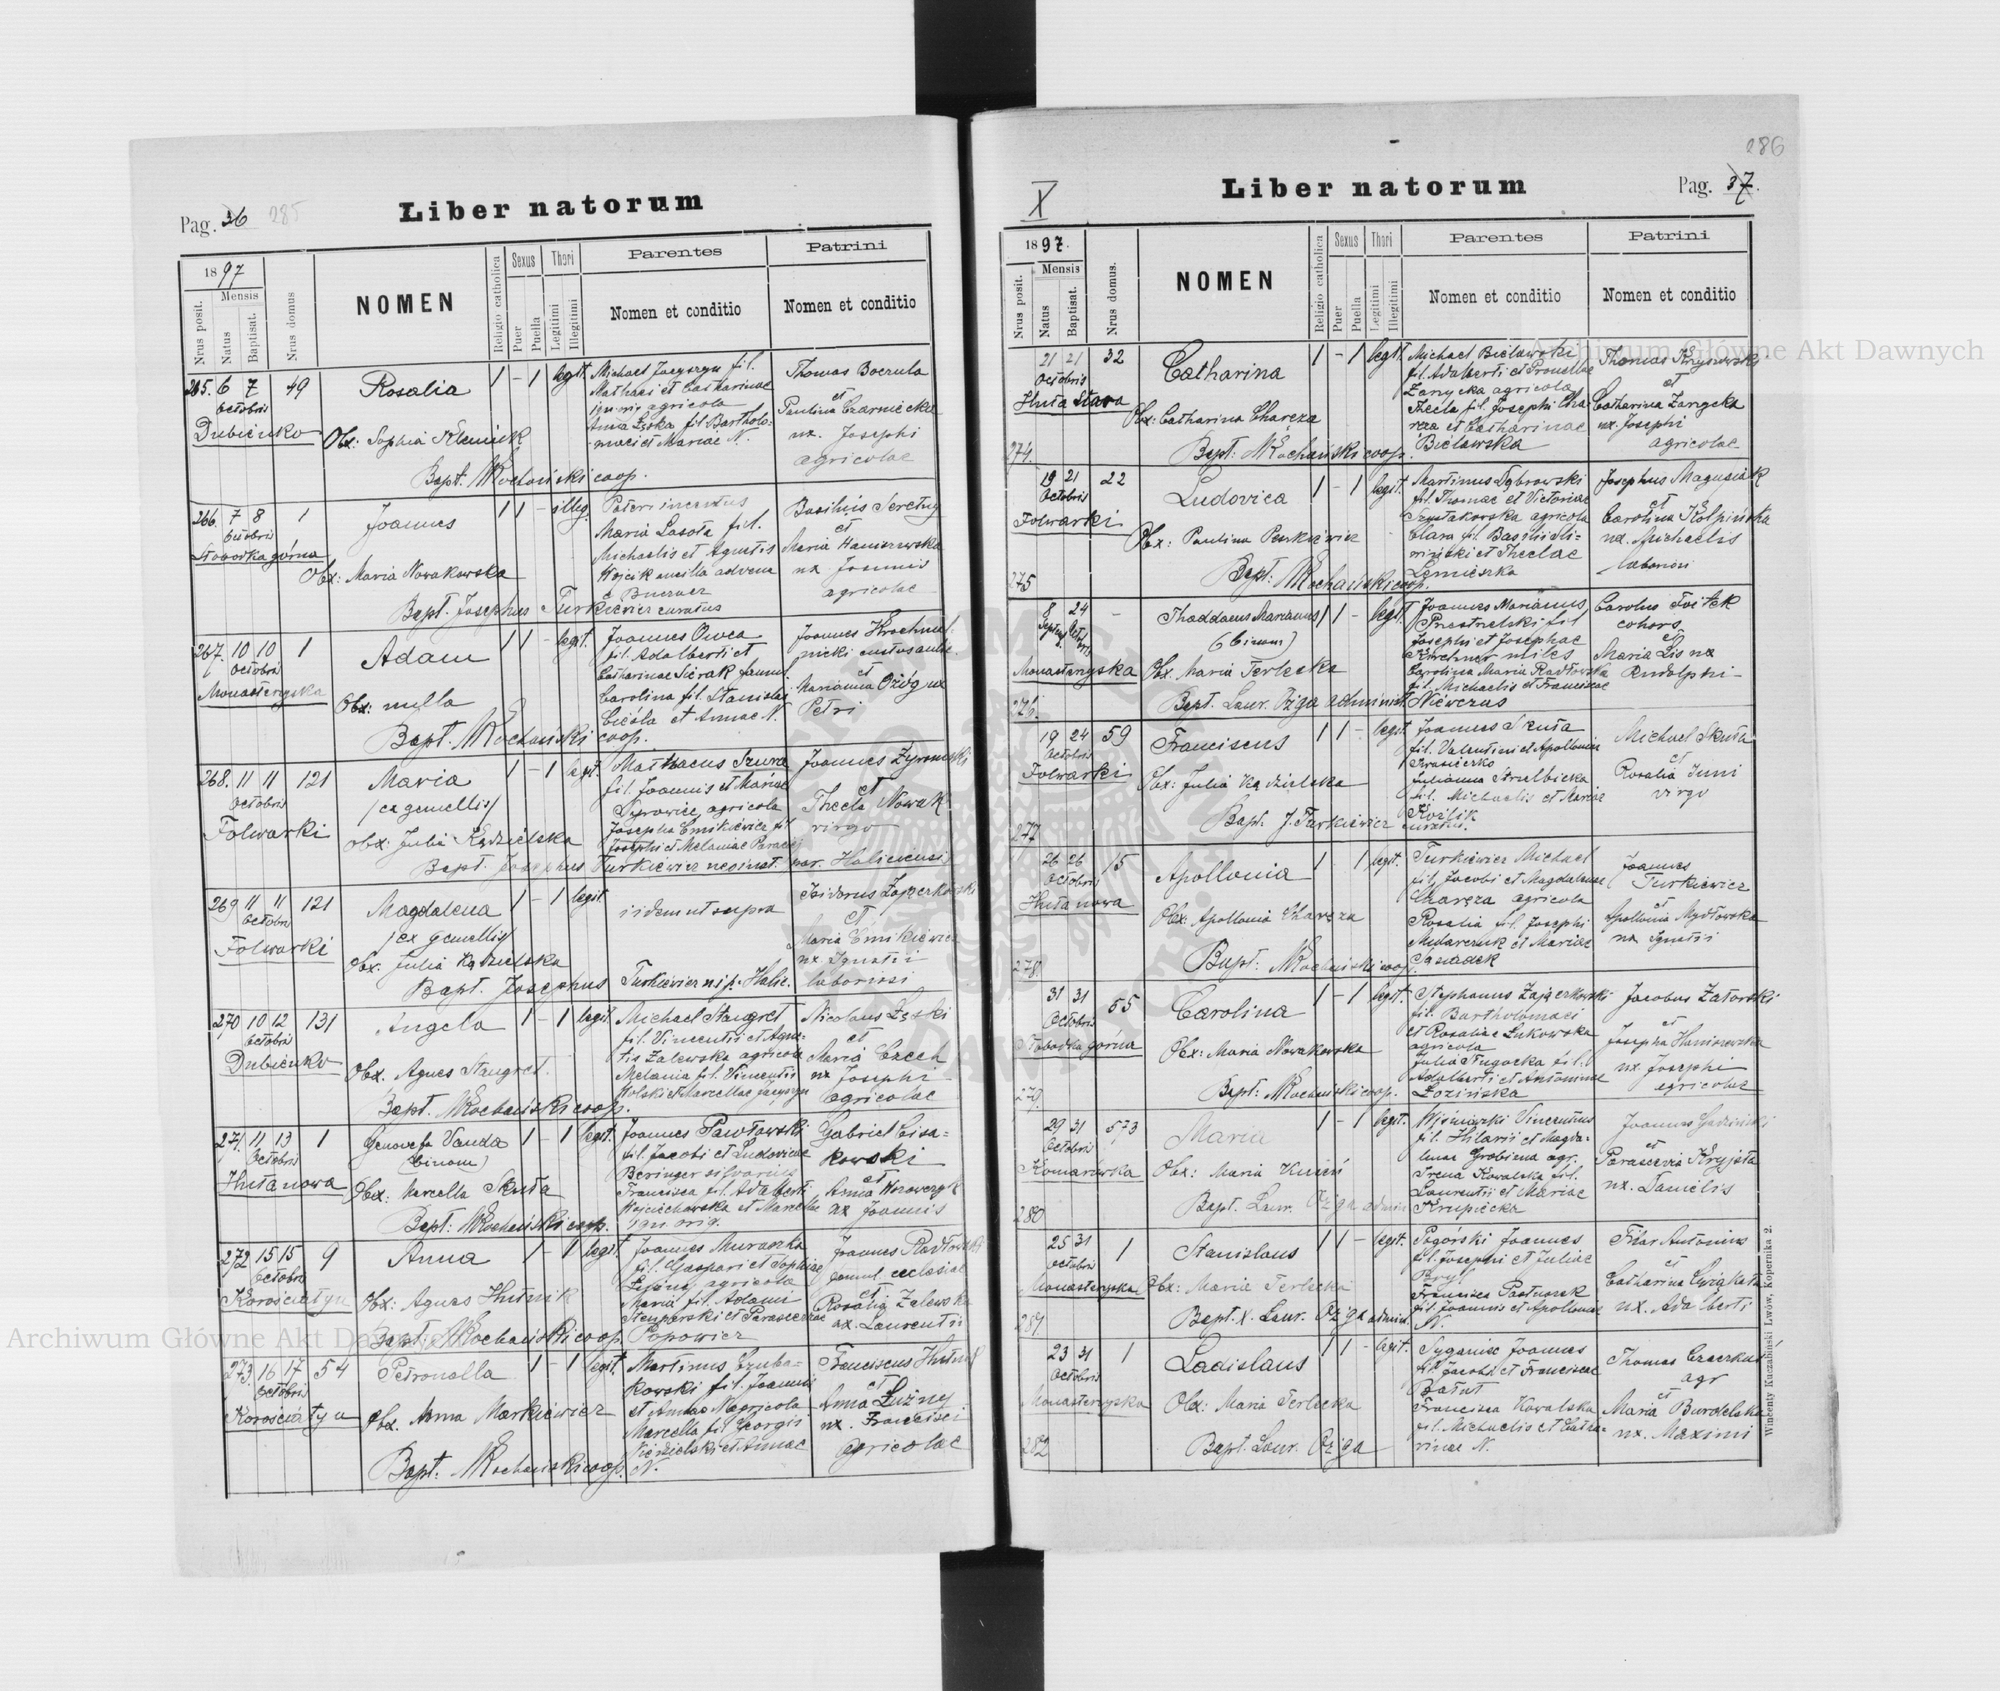 Pag. 36 285
Liber natorum
1897
Nrus posit.
Mensis
Natus
Baptisat.
Nrus domus
NOMEN
Religio catholica
Sexus
Puer
Puella
Thori
Legitimi
Illegitimi
Parentes
Nomen et conditio
Patrini
Nomen et conditio
265. 6 7 49 Rosalia 1 - 1 legit.
Octobris
Dubienko
Obx: Sophia Klemiuk
Bapt. Kochański coop.
Michael Jacyszyn fil.
Mathaei et Catharinae
ign. nip. agricola
Anna Łęska fil Bartholo-
maei et Mariae N.
Thomas Bocrula
et
Paulina Czarnecka
ux. Josephi
agricolae
266. 7 8 1 Joannes 1 1 - illeg.
Octobris
Słobodka górna
Obx: Maria Nowakowska
Bapt. Josephus Turkiewicz curatus
Pater incertus
Maria Lasota fil.
Michaelis et Agnetis
Wojcik ancilla advena
e Buczacz
Basilius Seretny
et
Maria Haniszewska
ux. Joannis
agricolae
267. 10 10 1 Adam 1 1 - legit.
Octobris
Monasterzyska
Obx: nulla
Bapt. Kochański coop.
Joannes Owca
fil. Adalberti et
Catharinae Sierak famul.
Carolina fil Stanislai
Cieśla et Annae N.
Joannes Krochmal-
nicki custos aulic.
et
Marianna Ożóg ux
Petri
268. 11 11 121 Maria 1 - 1 legit.
Octobris
/ex gemellis/
Folwarki
Obx: Julia Kądzielska
Bapt. Josephus Turkiewicz neoinst. par. Haliciensi
Mathaeus Szura
fil. Joannis et Mariae
agricola
Josepha Emikiewicz fil
Josephi et Melaniae
Joannes Żyromski
et
Thecla Nowak
virgo
269 11 11 121 Magdalena 1 - 1 legit.
Octobris
/ex gemellis/
Folwarki
Obx. Julia Kądzielska
Bapt. Josephus Turkiewicz n.i.p. Halic.
iidem ut supra
Isidorus Zajączkowski
et
Maria Emikiewicz
ux. Ignatii
laboriosi
270 10 12 131 Angela 1 - 1 legit.
Octobris
Dubienko
Obx. Agnes Staugret
Bapt. Kochański coop.
Michael Staugret
fil. Vincentii et Agne-
tis Zalewska agricola
Melania fil. Vincentii
Wolski et Marcellae Jacyszyn
Nicolaus Łęski
et
Maria Czech
ux Josephi
agricolae
271. 11 13 1 Genovefa Vanda 1 - 1 legit.
Octobris
(binom)
Huta nowa
Obx: Marcella Skuła
Bapt: Kochański coop.
Joannes Pawłowski
fil. Jacobi et Ludovicae
Beringer silvarius
Francisca fil. Adalberti
Wojciechowska et Marcellae
ign. orig.
Gabriel Cisa-
kowski
et
Anna
ux Joannis
272 15 15 9 Anna 1 - 1 legit.
Octobris
Korościatyn
Obx: Agnes Hutnik
Bapt: Kochański coop.
Joannes Muraszka
fil. Gaspari et Sophiae
agricola
Maria fil. Adami
et Parasceviae
Popowicz
Joannes Radłowski
famul. ecclesiae
et
Rosalia Zalewska
ux. Laurentii
273. 16 17 54 Petronella 1 - 1 legit.
Octobris
Korościatyn
Obx. Anna Markiewicz
Bapt: Kochański coop.
Martinus Czuba-
kowski fil. Joannis
et Annae N agricola
Marcella fil Georgii
Niedzielski et Annae
N.
Franciscus Hutnik
et
Anna Łużny
ux. Francisci
agricolae
286
X
Liber natorum
Pag. 37.
1897.
Nrus posit.
Mensis
Natus
Baptisat.
Nrus domus.
NOMEN
Religio catholica
Sexus
Puer
Puella
Thori
Legitimi
Illegitimi
Parentes
Nomen et conditio
Patrini
Nomen et conditio
21 21 32 Catharina 1 - 1 legit.
Octobris
Huta Stara
Obx: Catharina Charęza
274. Bapt: Kochański coop.
Michael Bielawski
fil. Adalberti et Petronellae
Zarycka agricola
Thecla fil. Josephi Cha-
ręza et Catharinae
Bielawska
Thomas Krynowski
et
Catharina Zarycka
ux. Josephi
agricolae
19 21 22 Ludovica 1 - 1 legit.
Octobris
Folwarki
Obx: Paulina Paszkiewicz
275 Bapt: Kochański coop.
Martinus Dąbrowski
fil. Thomae et Victoriae
agricola
Clara fil. Basilii Sli-
wiński et Theclae
Lemieszka
Josephus Magusiak
et
Carolina Kolpińska
ux. Michaelis
laboriosi
8 24 - Thaddaeus Marianus 1 1 - legit.
Septemb. Octobris
(binom)
Monasterzyska
Obx. Maria Terlecka
276. Bapt. Laur. Oziga administ.
Joannes Marianus
Przestrzelski fil
Josephi et Josephae
Kirchner miles
Carolina Maria Radłowska
fil. Michaelis et Franciscae
Niewczas
Carolus Foitek
cohors.
et
Maria Lis ux
Rudolphi
19 24 59 Franciscus 1 1 - legit.
Octobris
Folwarki
Obx: Julia Kądzielska
277 Bapt: J. Turkiewicz curatus.
Joannes Skuła
fil. Valentini et Apolloniae
Julianna Strzelbicka
fil. Michaelis et Mariae
Koźlik
Michael Skuła
et
Rosalia
virgo
26 26 15 Apollonia 1 - 1 legit.
Octobris
Huta nowa
Obx: Apollonia Charęza
278. Bapt: Kochański coop.
Turkiewicz Michael
fil. Jacobi et Magdalenae
Charęza agricola
Rosalia fil. Josephi
Mularczuk et Mariae
Sąsiadek
Joannes
Turkiewicz
et
Apollonia Mydłowska
ux. Ignatii
31 31 55 Carolina 1 - 1 legit.
Octobris
Słobodka górna
Obx: Maria Nowakowska
279. Bapt: Kochański coop.
Stephanus Zajączkowski
fil. Bartholomaei
et Rosaliae Łukowska
agricola
Julia Długocka fil.
Adalberti et Antoninae
Łozińska
Jacobus Zatorski
et
Josepha Haniszewska
ux. Josephi
agricolae
29 31 573 Maria 1 - 1 legit.
Octobris
Komarówka
Obx: Maria Kmień
280 Bapt. Laur. Oziga admin.
Wiśniowski Vincentius
fil. Hilarii et Magda-
lenae Grobiena agr.
Irena Kowalska fil.
Laurentii et Mariae
Krupiecka
Joannes Gadziński
et
Parascevia Kryjska
ux. Danielis
25 31 1 Stanislaus 1 1 - legit.
Octobris
Monasterzyska
Obx: Maria Terlecka
281 Bapt. X. Laur. Oziga admin.
Pogórski Joannes
fil. Josephi et Juliae
Bryl
Francisca Pastuszek
fil. Joannis et Apolloniae
N.
Filar Antonius
et
Catharina Cwiękała
ux. Adalberti
23 31 1 Ladislaus 1 1 - legit.
Octobris
Monasterzyska
Obx: Maria Terlecka
282 Bapt. Laur. Oziga
Cyganik Joannes
fil. Jacobi et Franciscae
Bałut
Francisca Kowalska
fil. Michaelis et Catha-
rinae N.
Thomas Czaczkus
agr
et
Maria Burdelska
ux. Maximi
Wincenty Kuczabiński Lwów, Kopernika 2.
Archiwum Główne Akt Dawnych
Archiwum Główne Akt Dawnych